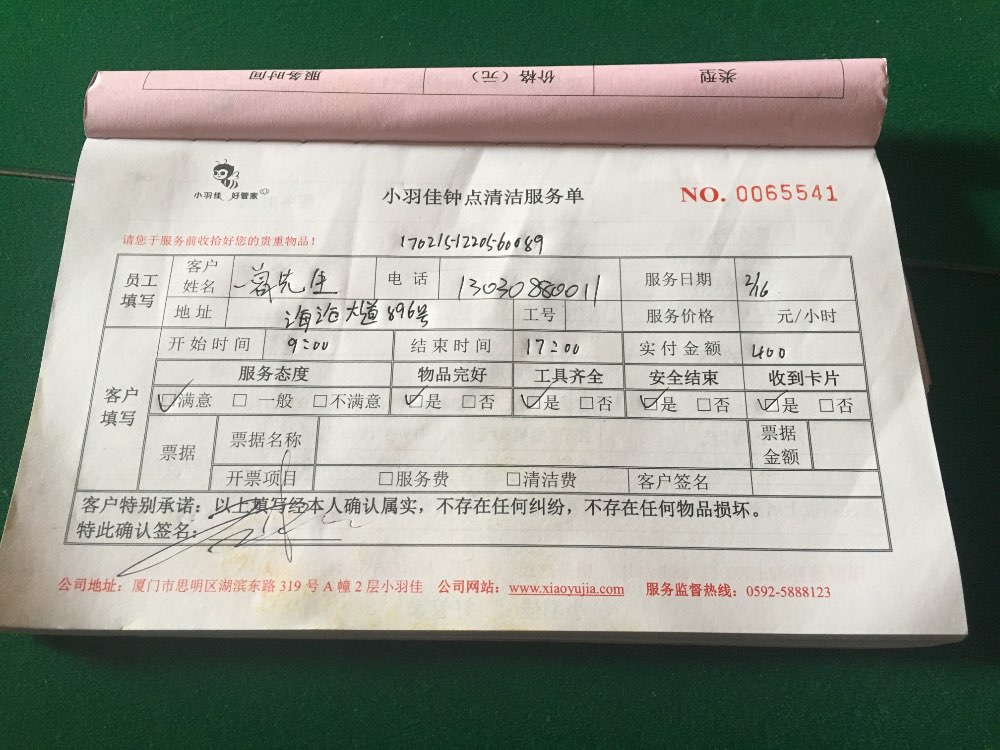 服务时间 价格（元） 类型
小羽佳 好管家
小羽佳钟点清洁服务单
NO. 0065541
请您于服务前收拾好您的贵重物品！
1702151220560089
员工填写 客户姓名 先生 电话 13030880011 服务日期 2/16
地址 海沧大道896号 工号 服务价格 元/小时
客户填写 开始时间 9:00 结束时间 17:00 实付金额 400
服务态度 物品完好 工具齐全 安全结束 收到卡片
☑满意 □一般 □不满意 ☑是 □否 ☑是 □否 ☑是 □否 ☑是 □否
票据 票据名称 票据金额
开票项目 □服务费 □清洁费 客户签名
客户特别承诺：以上填写经本人确认属实，不存在任何纠纷，不存在任何物品损坏。
特此确认签名：
公司地址：厦门市思明区湖滨东路 319 号 A 幢 2 层小羽佳 公司网站：www.xiaoyujia.com 服务监督热线：0592-5888123